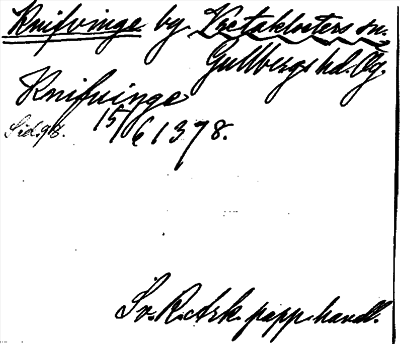 Knifvinge by. Vretaklosters sn.
Gullbergs hd. Ög.
Knifvinge
15/6 1378.
Sv. R. Ark. papp. handl.